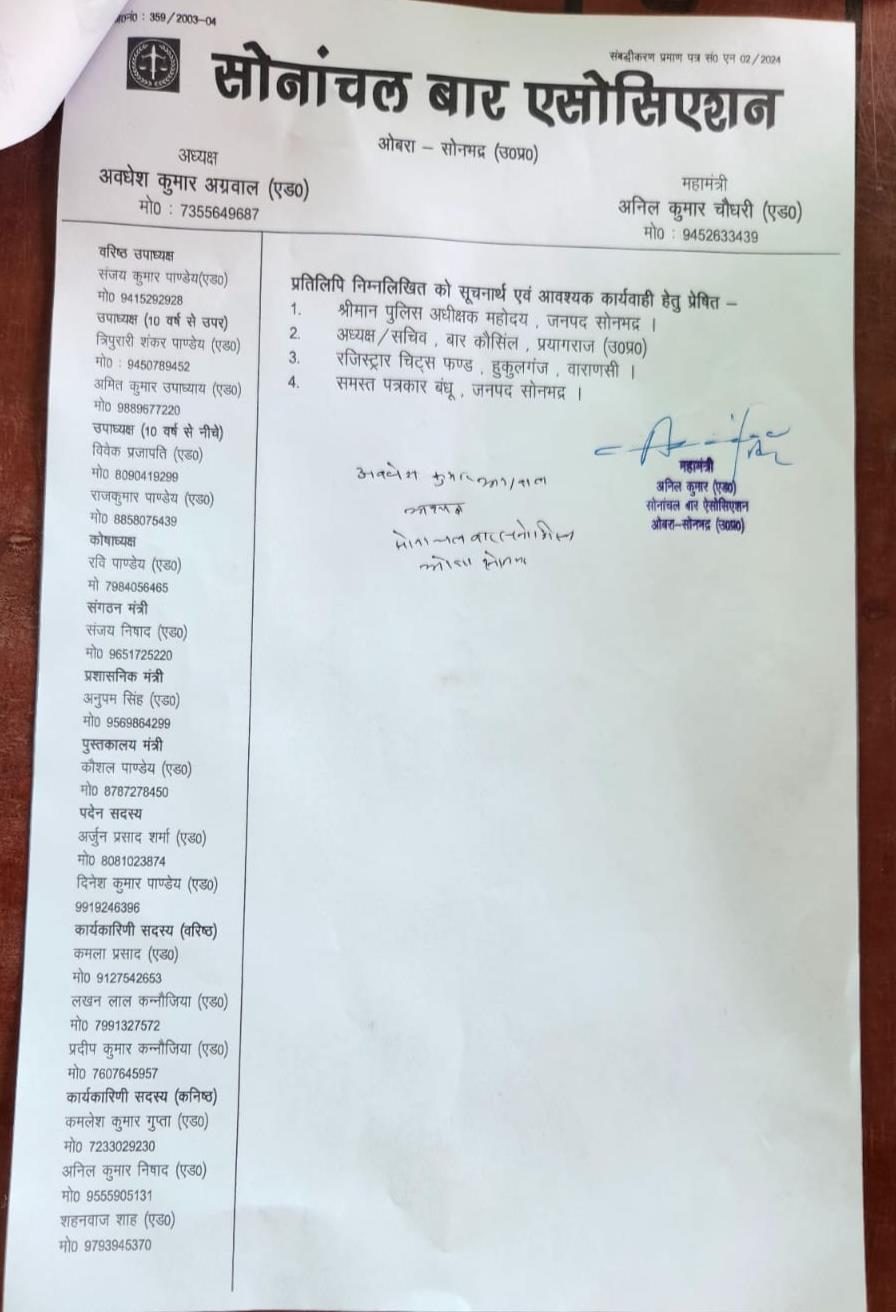 : 359/2003-04
संबद्धीकरण प्रमाण पत्र सं0 एन 02/2024
सोनांचल बार एसोसिएशन
ओबरा – सोनभद्र (उ0प्र0)
अध्यक्ष
अवधेश कुमार अग्रवाल (एड0)
मो0 : 7355649687
महामंत्री
अनिल कुमार चौधरी (एड0)
मो0 : 9452633439
वरिष्ठ उपाध्यक्ष
संजय कुमार पाण्डेय(एड0)
मो0 9415292928
उपाध्यक्ष (10 वर्ष से उपर)
त्रिपुरारी शंकर पाण्डेय (एड0)
मो0 : 9450789452
अमित कुमार उपाध्याय (एड0)
मो0 9889677220
उपाध्यक्ष (10 वर्ष से नीचे)
विवेक प्रजापति (एड0)
मो0 8090419299
राजकुमार पाण्डेय (एड0)
मो0 8858075439
कोषाध्यक्ष
रवि पाण्डेय (एड0)
मो 7984056465
संगठन मंत्री
संजय निषाद (एड0)
मो0 9651725220
प्रशासनिक मंत्री
अनुपम सिंह (एड0)
मो0 9569864299
पुस्तकालय मंत्री
कौशल पाण्डेय (एड0)
मो0 8787278450
पदेन सदस्य
अर्जुन प्रसाद शर्मा (एड0)
मो0 8081023874
दिनेश कुमार पाण्डेय (एड0)
9919246396
कार्यकारिणी सदस्य (वरिष्ठ)
कमला प्रसाद (एड0)
मो0 9127542653
लखन लाल कन्नौजिया (एड0)
मो0 7991327572
प्रदीप कुमार कन्नौजिया (एड0)
मो0 7607645957
कार्यकारिणी सदस्य (कनिष्ठ)
कमलेश कुमार गुप्ता (एड0)
मो0 7233029230
अनिल कुमार निषाद (एड0)
मो0 9555905131
शहनवाज शाह (एड0)
मो0 9793945370
प्रतिलिपि निम्नलिखित को सूचनार्थ एवं आवश्यक कार्यवाही हेतु प्रेषित –
1. श्रीमान पुलिस अधीक्षक महोदय , जनपद सोनभद्र ।
2. अध्यक्ष/सचिव , बार कौसिंल , प्रयागराज (उ0प्र0)
3. रजिस्ट्रार चिट्स फण्ड , हुकुलगंज , वाराणसी ।
4. समस्त पत्रकार बंधू , जनपद सोनभद्र ।
अवधेश कुमार
महामंत्री
अनिल कुमार (एड0)
सोनांचल बार ऐसोसिएशन
ओबरा-सोनभद्र (उ0प्र0)